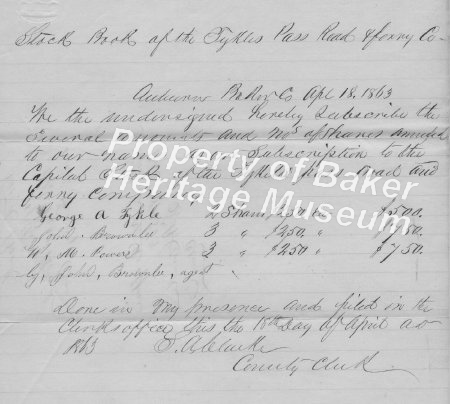 Stock Book of the Tykles Pass Road & ferry Co-
Auburn Baker Co Apl 18, 1863
We the undersigned Hereby Subscribe the
Several amounts and Nos of Shares annexed
to our names as our Subscription to the
Capital Stock of the Tykles Pass Road and
ferry company
George A Tykle 2 Shares $250 $500.
John Brownlee 3 " $250 " $750.
W. M. Powers 3 " $250 " $750.
By John Brownlee, agent
Done in my presence and filed in the
Clerks office this the 18th Day of April AD
1863 S. A. Clarke
County Clerk
Property of Baker
Heritage Museum